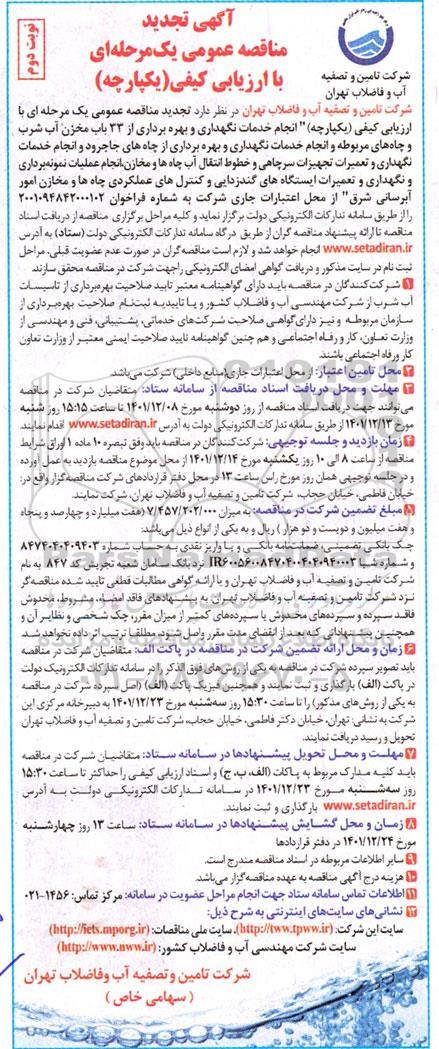 آگهی تجدید
مناقصه عمومی یک‌مرحله‌ای
با ارزیابی کیفی(یکپارچه)
نوبت دوم
شرکت تامین و تصفیه
آب و فاضلاب تهران
شرکت تامین و تصفیه آب و فاضلاب تهران در نظر دارد تجدید مناقصه عمومی یک مرحله ای با
ارزیابی کیفی (یکپارچه) " انجام خدمات نگهداری و بهره برداری از ۳۳ باب مخزن آب شرب
و چاه‌های مربوطه و انجام خدمات نگهداری و بهره برداری از چاه های جاجرود و انجام خدمات
نگهداری و تعمیرات تجهیزات سرچاهی و خطوط انتقال آب چاه ها و مخازن، انجام عملیات نمونه‌برداری
و نگهداری و تعمیرات ایستگاه های گندزدایی و کنترل های عملکردی چاه ها و مخازن امور
آبرسانی شرق" از محل اعتبارات جاری شرکت به شماره فراخوان ۲۰۰۱۰۹۴۸۴۲۰۰۰۱۰۲
را از طریق سامانه تدارکات الکترونیکی دولت برگزار نماید و کلیه مراحل برگزاری مناقصه از دریافت اسناد
مناقصه تا ارائه پیشنهاد مناقصه گران از طریق درگاه سامانه تدارکات الکترونیکی دولت (ستاد) به آدرس
www.setadiran.ir انجام خواهد شد و لازم است مناقصه‌گران در صورت عدم عضویت قبلی، مراحل
ثبت نام در سایت مذکور و دریافت گواهی امضای الکترونیکی راجهت شرکت در مناقصه محقق سازند.
۱ شرکت‌کنندگان در مناقصه باید دارای گواهینامه معتبر تایید صلاحیت بهره‌برداری از تاسیسات
آب شرب از شرکت مهندسی آب و فاضلاب کشور و یا تاییدیه ثبت‌نام صلاحیت بهره‌برداری از
سازمان مربوطه و نیز دارای گواهی صلاحیت شرکت‌های خدماتی، پشتیبانی، فنی و مهندسی از
وزارت تعاون، کار و رفاه اجتماعی و هم چنین گواهینامه تایید صلاحیت ایمنی معتبر از وزارت تعاون
کار و رفاه اجتماعی باشند.
۲ محل تامین اعتبار: از محل اعتبارات جاری(منابع داخلی) شرکت می‌باشد.
۳ مهلت و محل دریافت اسناد مناقصه از سامانه ستاد: متقاضیان شرکت در مناقصه
می‌توانند جهت دریافت اسناد مناقصه از روز دوشنبه مورخ ۱۴۰۱/۱۲/۰۸ تا ساعت ۱۵:۱۵ روز شنبه
مورخ ۱۴۰۱/۱۲/۱۳ از طریق سامانه تدارکات الکترونیکی دولت به آدرس www.setadiran.ir اقدام نمایند.
۴ زمان بازدید و جلسه توجیهی: شرکت‌کنندگان در مناقصه باید وفق تبصره ۱۰ ماده ۱ اوراق شرایط
مناقصه از ساعت ۸ الی ۱۰ روز یکشنبه مورخ ۱۴۰۱/۱۲/۱۴ از محل موضوع مناقصه بازدید به عمل آورده
و در جلسه توجیهی همان روز مورخ راس ساعت ۱۳ در محل دفتر قراردادهای شرکت مناقصه‌گزار واقع در:
خیابان فاطمی، خیابان حجاب، شرکت تامین و تصفیه آب و فاضلاب تهران، شرکت نمایند.
۵ مبلغ تضمین شرکت در مناقصه: به میزان ۷/۴۵۷/۲۰۲/۰۰۰ (هفت میلیارد و چهارصد و پنجاه
و هفت میلیون و دویست و دو هزار ) ریال و به یکی از انواع ذیل می‌باشد:
چک بانکی تضمینی، ضمانتنامه بانکی و یا واریز نقدی به حساب شماره ۸۴۷۴۰۴۰۴۰۹۴۰۳
و شماره شبا IR۶۰۰۵۶۰۰۸۴۷۰۴۰۰۴۰۴۰۹۴۰۰۳ نزد بانک سامان شعبه تجریش کد ۸۴۷ به نام
شرکت تامین و تصفیه آب و فاضلاب تهران و یا ارائه گواهی مطالبات قطعی تایید شده مناقصه‌گر
نزد شرکت تامین و تصفیه آب و فاضلاب تهران به پیشنهادهای فاقد امضاء، مشروط، مخدوش
فاقد سپرده و سپرده‌های مخدوش یا سپرده‌های کمتر از میزان مقرر، چک شخصی و نظایر آن و
همچنین به پیشنهاداتی که بعد از انقضای مدت مقرر واصل شود، مطلقا ترتیب اثر داده نخواهد شد.
۶ زمان و محل ارائه تضمین شرکت در مناقصه در پاکت الف: متقاضیان شرکت در مناقصه
باید تصویر سپرده شرکت در مناقصه به یکی از روش‌های فوق الذکر را در سامانه تدارکات الکترونیک دولت
در پاکت (الف) بارگذاری و ثبت نمایند و همچنین فیزیک پاکت (الف) (اصل سپرده شرکت در مناقصه
به یکی از روش‌های مذکور) را تا ساعت ۱۵:۳۰ روز سه‌شنبه مورخ ۱۴۰۱/۱۲/۲۳ به دبیرخانه مرکزی این
شرکت به نشانی: تهران، خیابان دکتر فاطمی، خیابان حجاب، شرکت تامین و تصفیه آب و فاضلاب تهران
تحویل و رسید دریافت نمایند.
۷ مهلت و محل تحویل پیشنهادها در سامانه ستاد: متقاضیان شرکت در مناقصه
باید کلیه مدارک مربوط به پاکات (الف، ب، ج) و اسناد ارزیابی کیفی را حداکثر تا ساعت ۱۵:۳۰
روز سه‌شنبه مورخ ۱۴۰۱/۱۲/۲۳ در سامانه تدارکات الکترونیکی دولت به آدرس
www.setadiran.ir بارگذاری و ثبت نمایند.
۸ زمان و محل گشایش پیشنهادها در سامانه ستاد: ساعت ۱۳ روز چهارشنبه
مورخ ۱۴۰۱/۱۲/۲۴ در دفتر قراردادها
۹ سایر اطلاعات مربوطه در اسناد مناقصه مندرج است.
۱۰ هزینه درج آگهی مناقصه به عهده مناقصه‌گزار می‌باشد.
۱۱ اطلاعات تماس سامانه ستاد جهت انجام مراحل عضویت در سامانه: مرکز تماس: ۱۴۵۶-۰۲۱
۱۲ نشانی‌های سایت‌های اینترنتی به شرح ذیل:
سایت این شرکت: (http://tww.tpww.ir)، سایت ملی مناقصات: (http://iets.mporg.ir)
سایت شرکت مهندسی آب و فاضلاب کشور: (http://www.nww.ir)
شرکت تامین وتصفیه آب وفاضلاب تهران
( سهامی خاص )